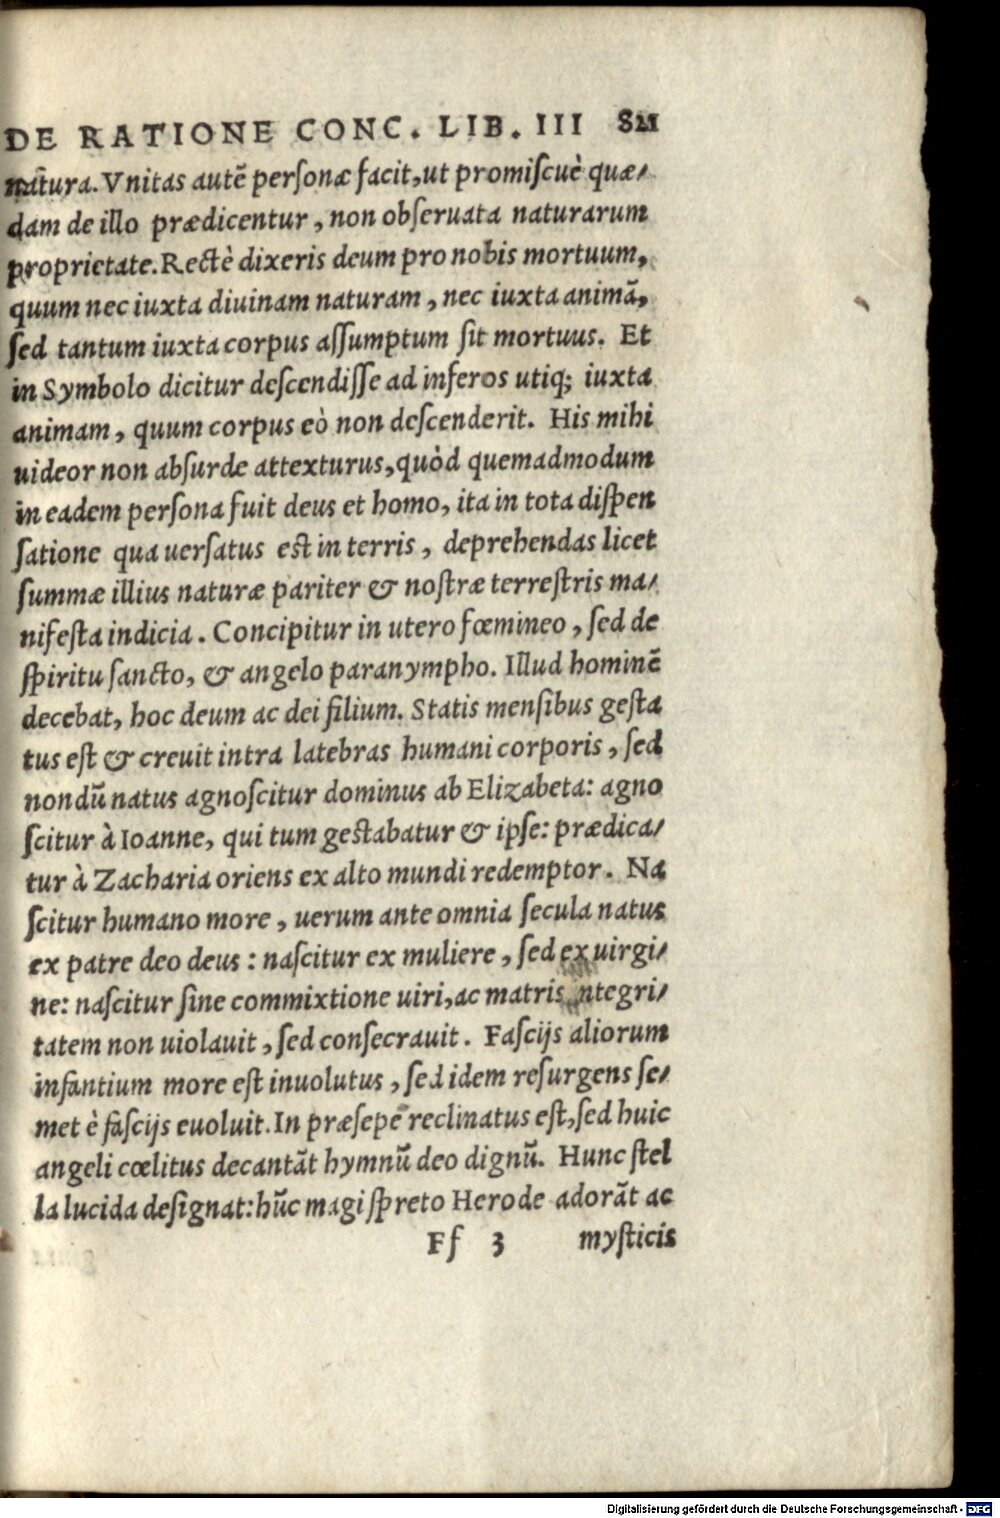 DE RATIONE CONC. LIB. III 821
natura. Vnitas autē personæ facit, ut promiſcuè quæ/
dam de illo prædicentur, non obſeruata naturarum
proprietate. Rectè dixeris deum pro nobis mortuum,
quum nec iuxta diuinam naturam, nec iuxta animā,
ſed tantum iuxta corpus aſſumptum ſit mortuus. Et
in Symbolo dicitur deſcendiſſe ad inferos utiq; iuxta
animam, quum corpus eò non deſcenderit. His mihi
uideor non abſurde attexturus, quòd quemadmodum
in eadem perſona fuit deus et homo, ita in tota diſpen
ſatione qua uerſatus eſt in terris, deprehendas licet
ſummæ illius naturæ pariter & noſtræ terreſtris ma/
nifeſta indicia. Concipitur in utero fœmineo, ſed de
ſpiritu ſancto, & angelo paranympho. Illud hominē
decebat, hoc deum ac dei filium. Statis menſibus geſta
tus eſt & creuit intra latebras humani corporis, ſed
nondū natus agnoſcitur dominus ab Elizabeta: agno
ſcitur à Ioanne, qui tum geſtabatur & ipſe: prædica/
tur à Zacharia oriens ex alto mundi redemptor. Na
ſcitur humano more, uerum ante omnia ſecula natus
ex patre deo deus: naſcitur ex muliere, ſed ex uirgi/
ne: naſcitur ſine commixtione uiri, ac matris ntegri/
tatem non uiolauit, ſed conſecrauit. Faſcijs aliorum
infantium more eſt inuolutus, ſed idem reſurgens ſe/
met è faſcijs euoluit. In præſepe reclinatus eſt, ſed huic
angeli cœlitus decantāt hymnū deo dignū. Hunc ſtel
la lucida deſignat: hūc magi ſpreto Herode adorāt ac
Ff 3 myſticis
Digitalisierung gefördert durch die Deutsche Forschungsgemeinschaft - DFG